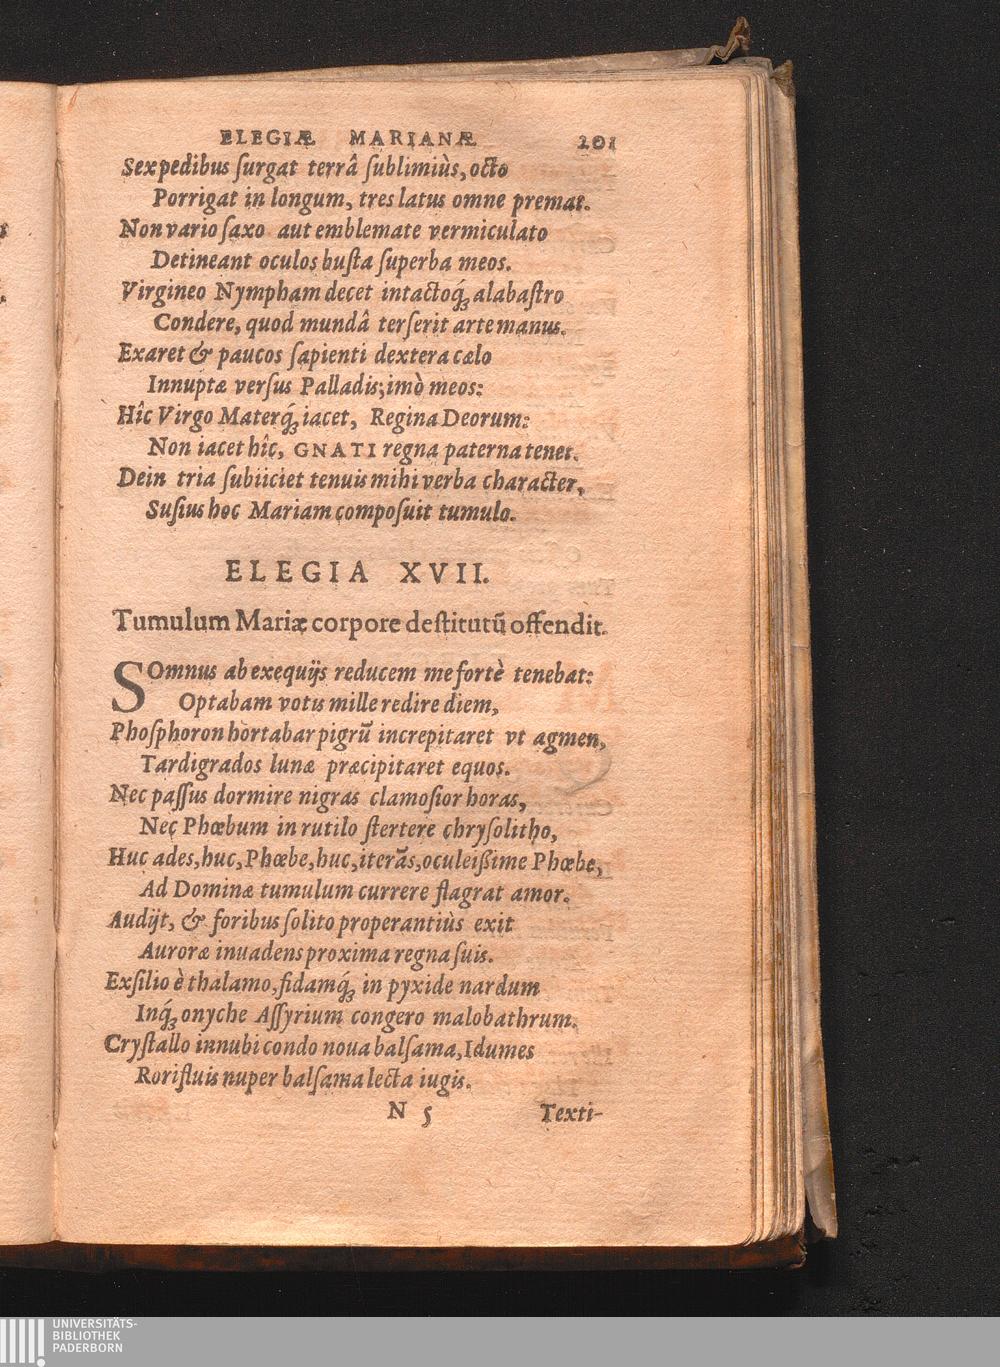 ELEGIÆ MARIANÆ 201
Sex pedibus ſurgat terrâ ſublimiùs, octo
Porrigat in longum, tres latus omne premat.
Non vario ſaxo aut emblemate vermiculato
Detineant oculos buſta ſuperba meos.
Virgineo Nympham decet intactoq́ꝫ alabaſtro
Condere, quod mundâ terſerit arte manus.
Exaret & paucos ſapienti dextera cælo
Innuptæ verſus Palladis; imò meos:
Hîc Virgo Materq́ꝫ iacet, Regina Deorum:
Non iacet hîc, GNATI regna paterna tenet.
Dein tria ſubiiciet tenuis mihi verba character,
Suſius hoc Mariam compoſuit tumulo.
ELEGIA XVII.
Tumulum Mariæ corpore deſtitutũ offendit.
SOmnus ab exequijs reducem me fortè tenebat:
Optabam votis mille redire diem,
Phoſphoron hortabar pigrũ increpitaret vt agmen,
Tardigrados lunæ præcipitaret equos.
Nec paſſus dormire nigras clamoſior horas,
Nec Phœbum in rutilo ſtertere chryſolitho,
Huc ades, huc, Phœbe, huc, iterãs, oculeißime Phœbe,
Ad Dominæ tumulum currere flagrat amor.
Audijt, & foribus ſolito properantiùs exit
Auroræ inuadens proxima regna ſuis.
Exſilio è thalamo, fidamq́ꝫ in pyxide nardum
Inq́ꝫ onyche Aſſyrium congero malobathrum.
Cryſtallo innubi condo noua balſama, Idumes
Rorifluis nuper balſama lecta iugis.
N 5 Texti-
UNIVERSITÄTS-
BIBLIOTHEK
PADERBORN